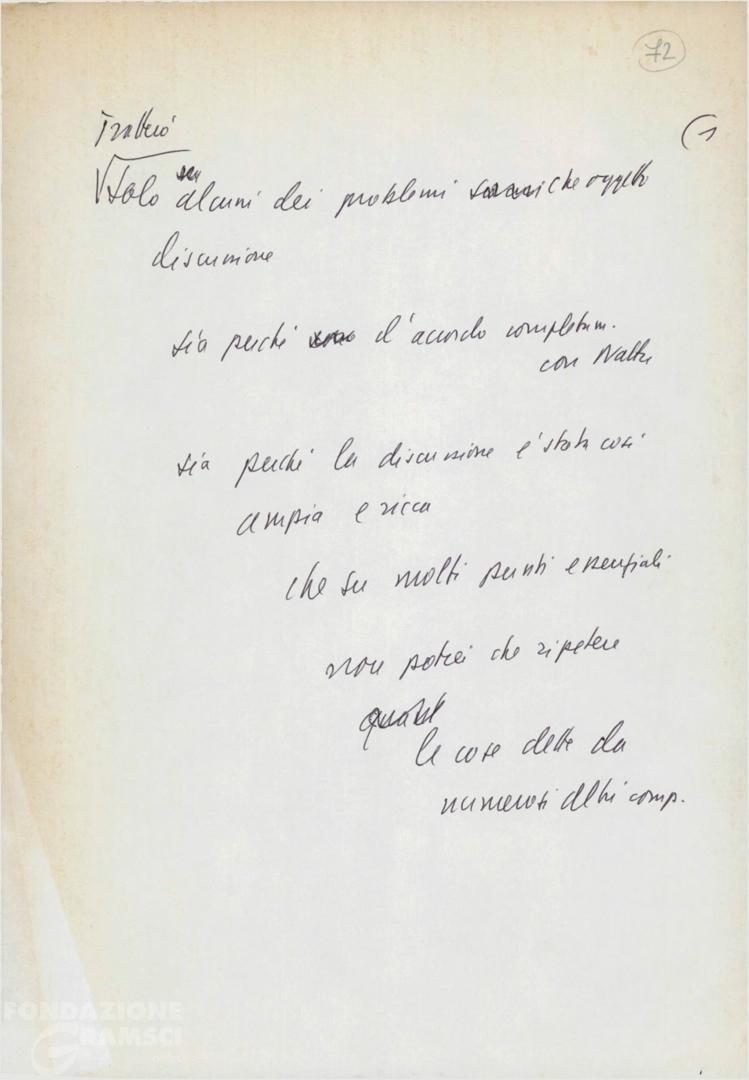 72
(1
Tratterò
Solo su alcuni dei problemi che oggetto
discussione
sia perché d'accordo completam.
con Natta
sia perché la discussione è stata così
ampia e ricca
che su molti punti essenziali
non potrei che ripetere
le cose dette da
numerosi altri comp.
FONDAZIONE
GRAMSCI